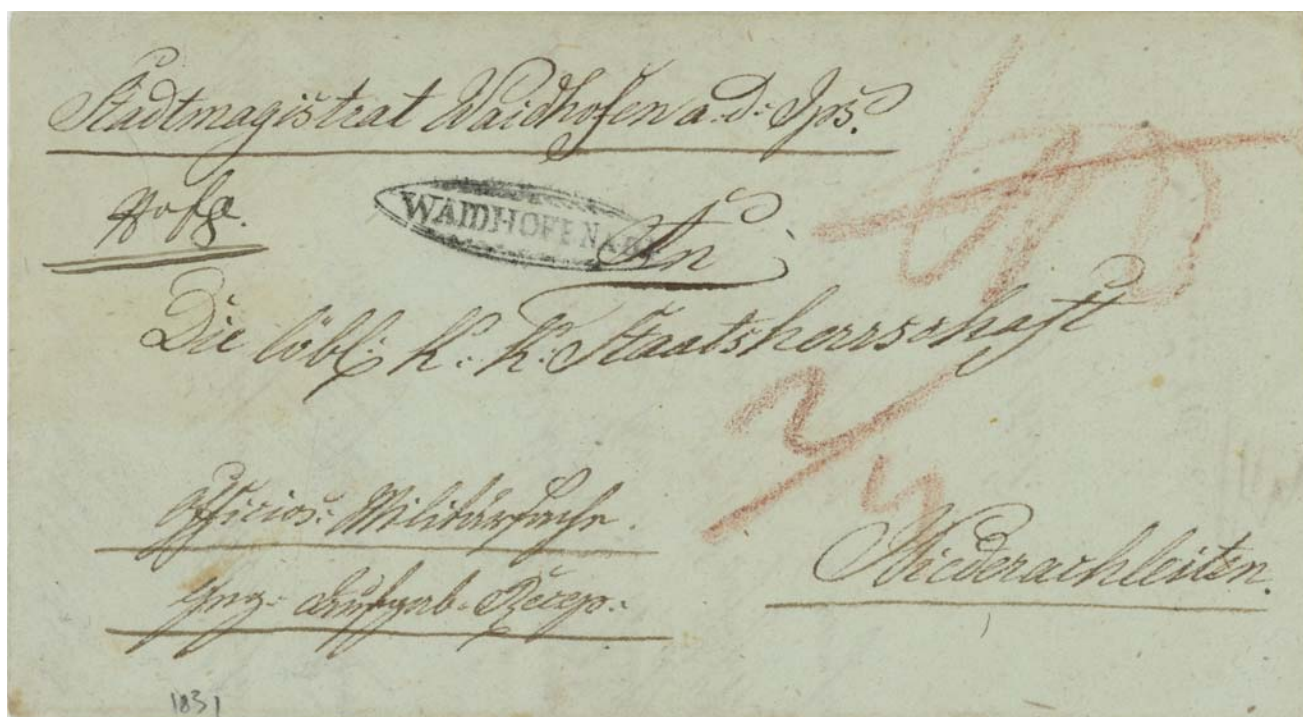 Stadtmagistrat Waidhofen a: d: Ips.
WAIDHOFEN A
An
Die löbl: K: K: Staatsherrschaft
Officios: Militärsache.
Aufgab-Recep:
Niederachleiten.
1831